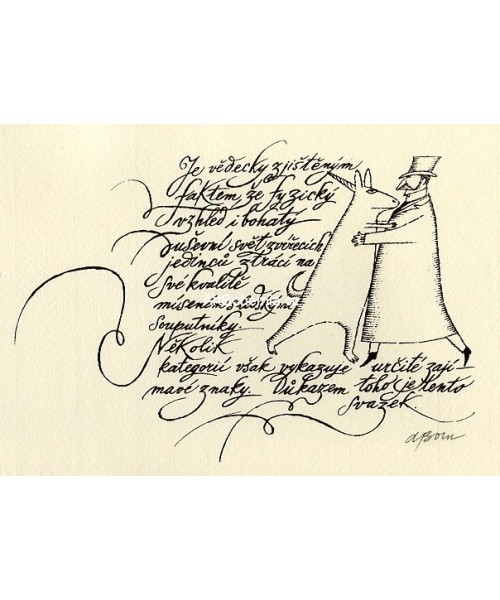 Je vědecky zjištěným
faktem, že fyzický
vzhled i bohatý
duševní svět zvířecích
jedinců ztrácí na
své kvalitě
míšením s lidskými
souputníky.
Několik
kategorií však vykazuje určité zají-
mavé znaky. Důkazem toho je tento
svazek.
ABorn